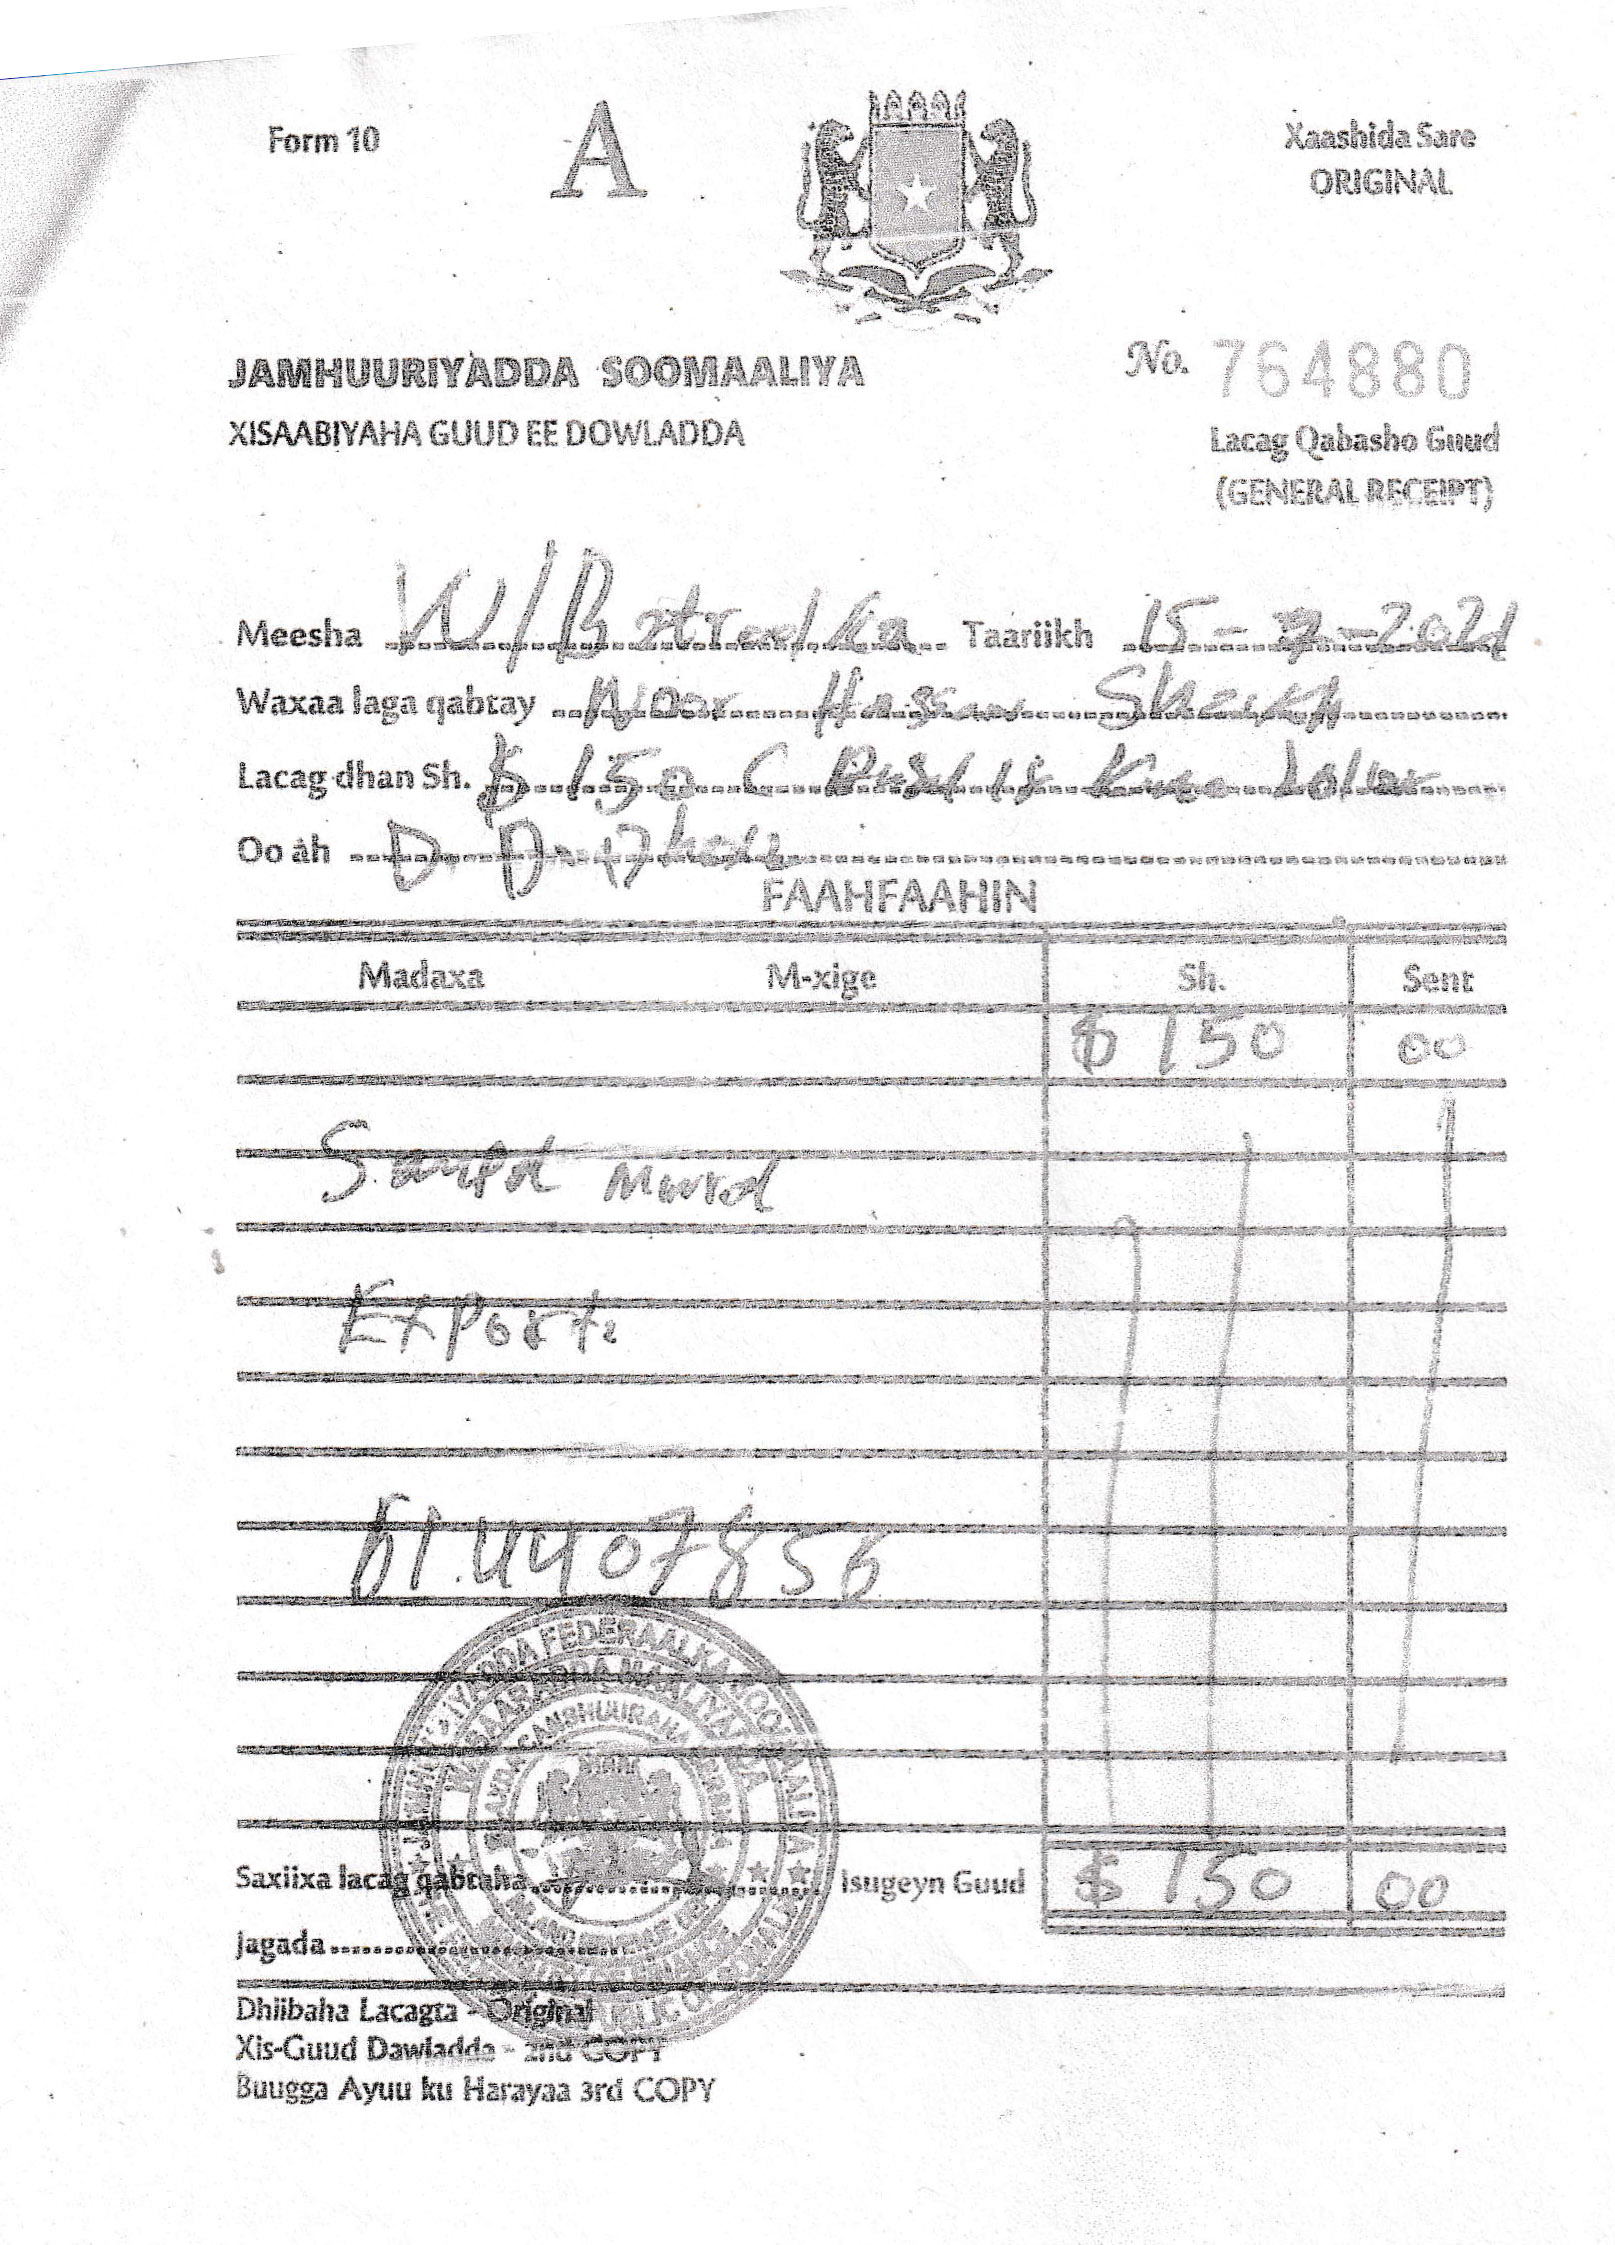 Form 10
A
Xaashida Sare
ORIGINAL
JAMHUURIYADDA SOOMAALIYA
No. 764880
XISAABIYAHA GUUD EE DOWLADDA
Lacag Qabasho Guud
(GENERAL RECEIPT)
Meesha W/ Taariikh 15 - -2021
Waxaa laga qabtay Noor Hassan Sheikh
Lacag dhan Sh. $ 150 Dollar
Oo ah D.
FAAHFAAHIN
Madaxa M-xige Sh. Sent
$ 150 00
Export
61.4407856
Saxiixa lacag qabtaha Isugeyn Guud $ 150 00
Jagada
Dhiibaha Lacagta - Original
Xis-Guud Dawladda - 2nd COPY
Buugga Ayuu ku Harayaa 3rd COPY